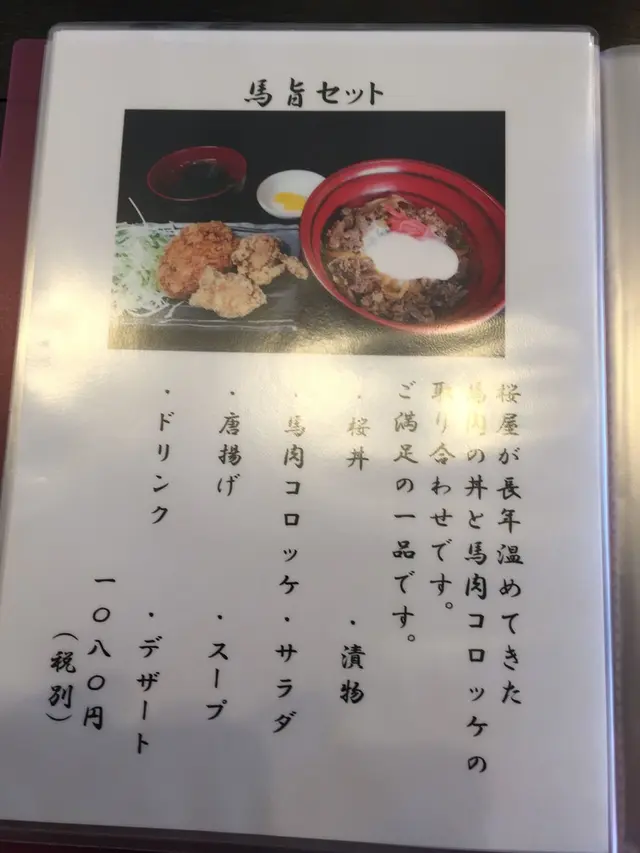 馬旨セット
桜屋が長年温めてきた
馬肉の丼と馬肉コロッケの
取り合わせです。
ご満足の一品です。
・桜丼 ・漬物
・馬肉コロッケ ・サラダ
・唐揚げ ・スープ
・ドリンク ・デザート
一〇八〇円
（税別）